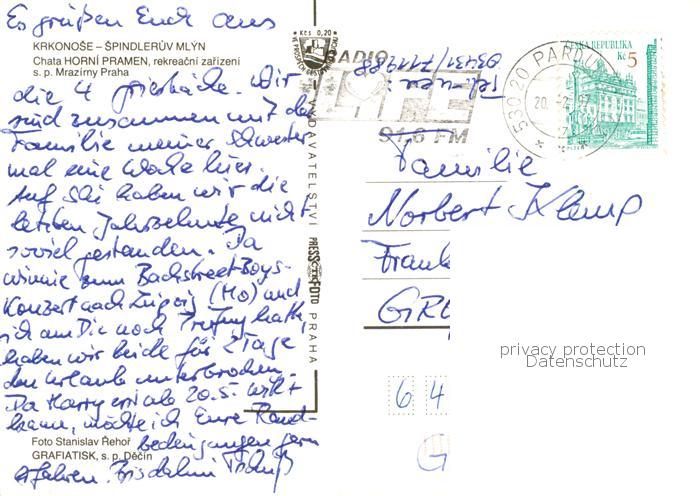 Es grüßen Euch aus
KRKONOŠE – ŠPINDLERŮV MLÝN
Chata HORNÍ PRAMEN, rekreační zařízení
s. p. Mrazírny Praha
die 4 . Wir
sind zusammen mit der
Familie meiner Schwester
mal eine Woche hier.
Auf Ski haben wir die
letzten Jahrzehnte nicht
soviel gestanden. Da
zum Backstreet-Boys-
Konzert nach Leipzig (Mo) und
ich am Die noch hatte,
haben wir beide für 2 Tage
den Urlaub unterbrochen.
Da Harry erst ab 20.5.
kann, möchte ich Eure Rand-
bedingungen gern
erfahren. Bis dahin Tschüß
Foto Stanislav Řehoř
GRAFIATISK, s. p. Děčín
Kčs 0,20
VYDAVATELSTVÍ
PRESSFOTO
PRAHA
RADIO
LIFE
91,6 FM
Tel.-neu:
03431/711288
530 20 PARDU
20. -2. 97
ČESKÁ REPUBLIKA
Kč 5
Familie
Norbert Klemp
Frank
GR
64
G
privacy protection
Datenschutz